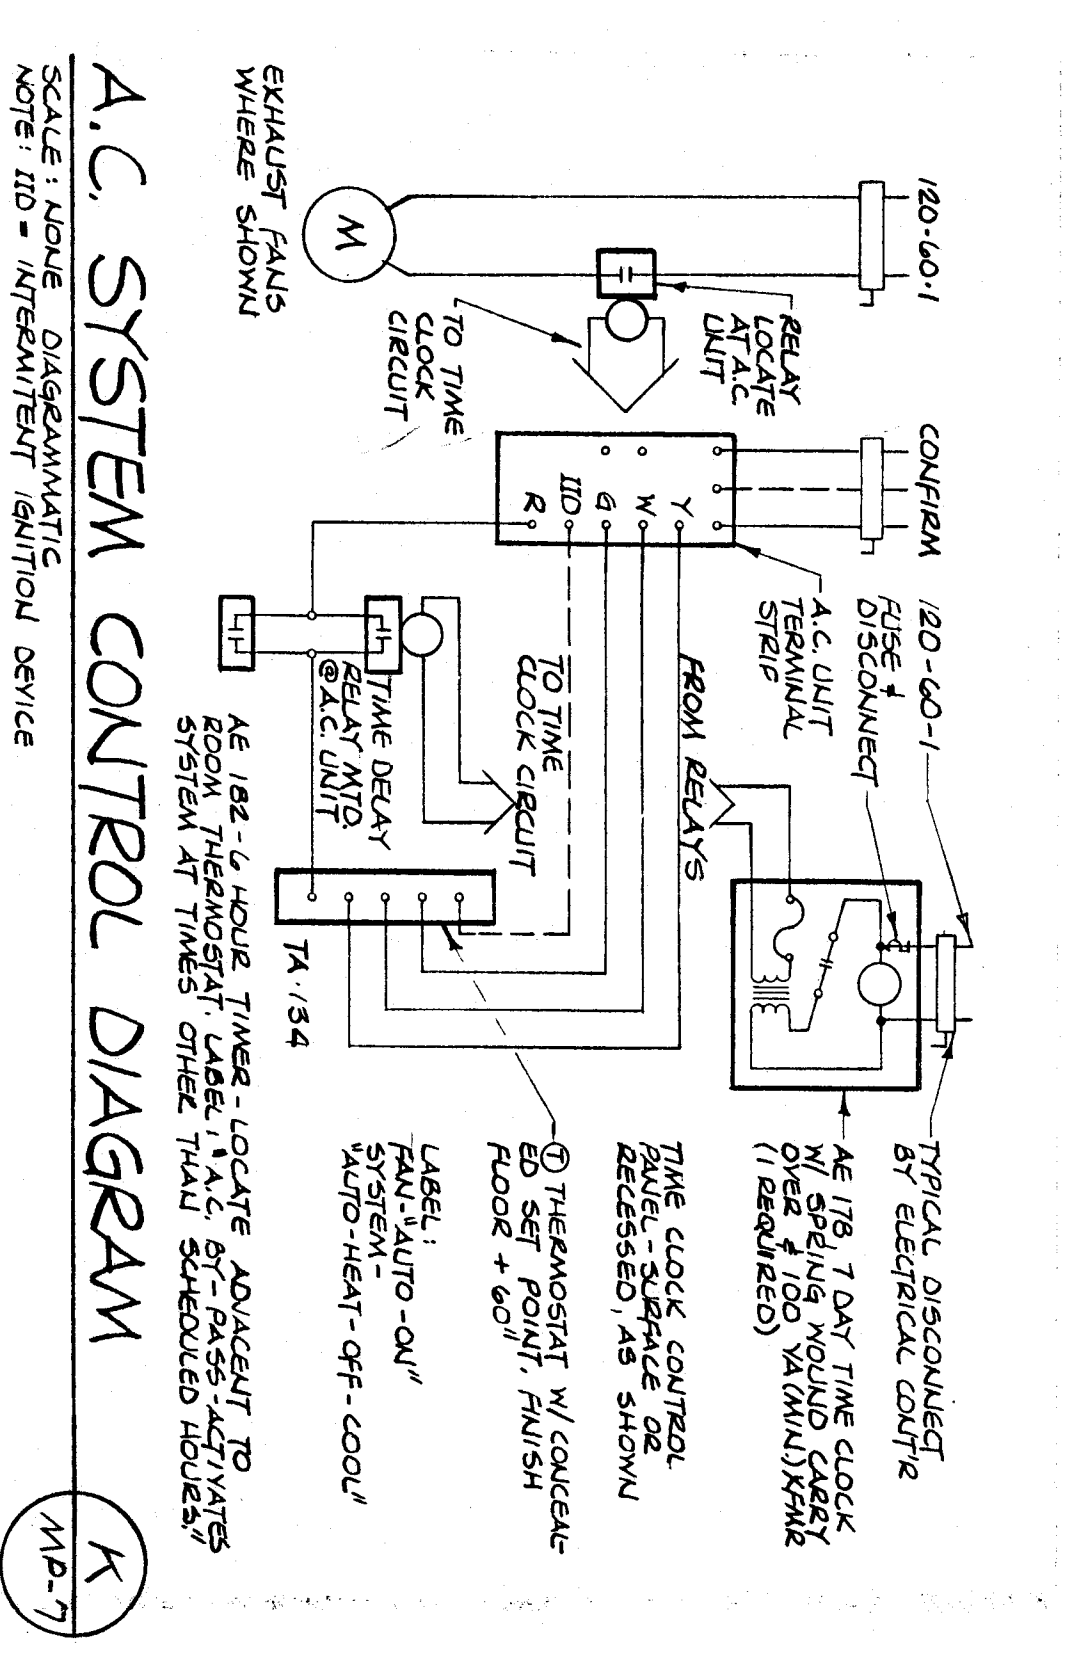 120-60-1
RELAY
LOCATE
AT A.C.
UNIT
TO TIME
CLOCK
CIRCUIT
M
EXHAUST FANS
WHERE SHOWN
CONFIRM
Y
W
G
IID
R
A.C. UNIT
TERMINAL
STRIP
120-60-1
FUSE &
DISCONNECT
FROM RELAYS
TO TIME
CLOCK CIRCUIT
TIME DELAY
RELAY MTD.
@ A.C. UNIT
TA-134
TYPICAL DISCONNECT
BY ELECTRICAL CONT'R
AE 178, 7 DAY TIME CLOCK
W/ SPRING WOUND CARRY
OVER & 100 VA (MIN.) XFMR
(1 REQUIRED)
TIME CLOCK CONTROL
PANEL-SURFACE OR
RECESSED, AS SHOWN
T THERMOSTAT W/ CONCEAL-
ED SET POINT. FINISH
FLOOR + 60"
LABEL:
FAN-"AUTO-ON"
SYSTEM-
"AUTO-HEAT-OFF-COOL"
AE 182-6 HOUR TIMER-LOCATE ADVACENT TO
ROOM THERMOSTAT. LABEL: "A.C. BY-PASS-ACTIVATES
SYSTEM AT TIMES OTHER THAN SCHEDULED HOURS."
A.C. SYSTEM CONTROL DIAGRAM
SCALE: NONE DIAGRAMMATIC
NOTE: IID = INTERMITENT IGNITION DEVICE
K
MP-7